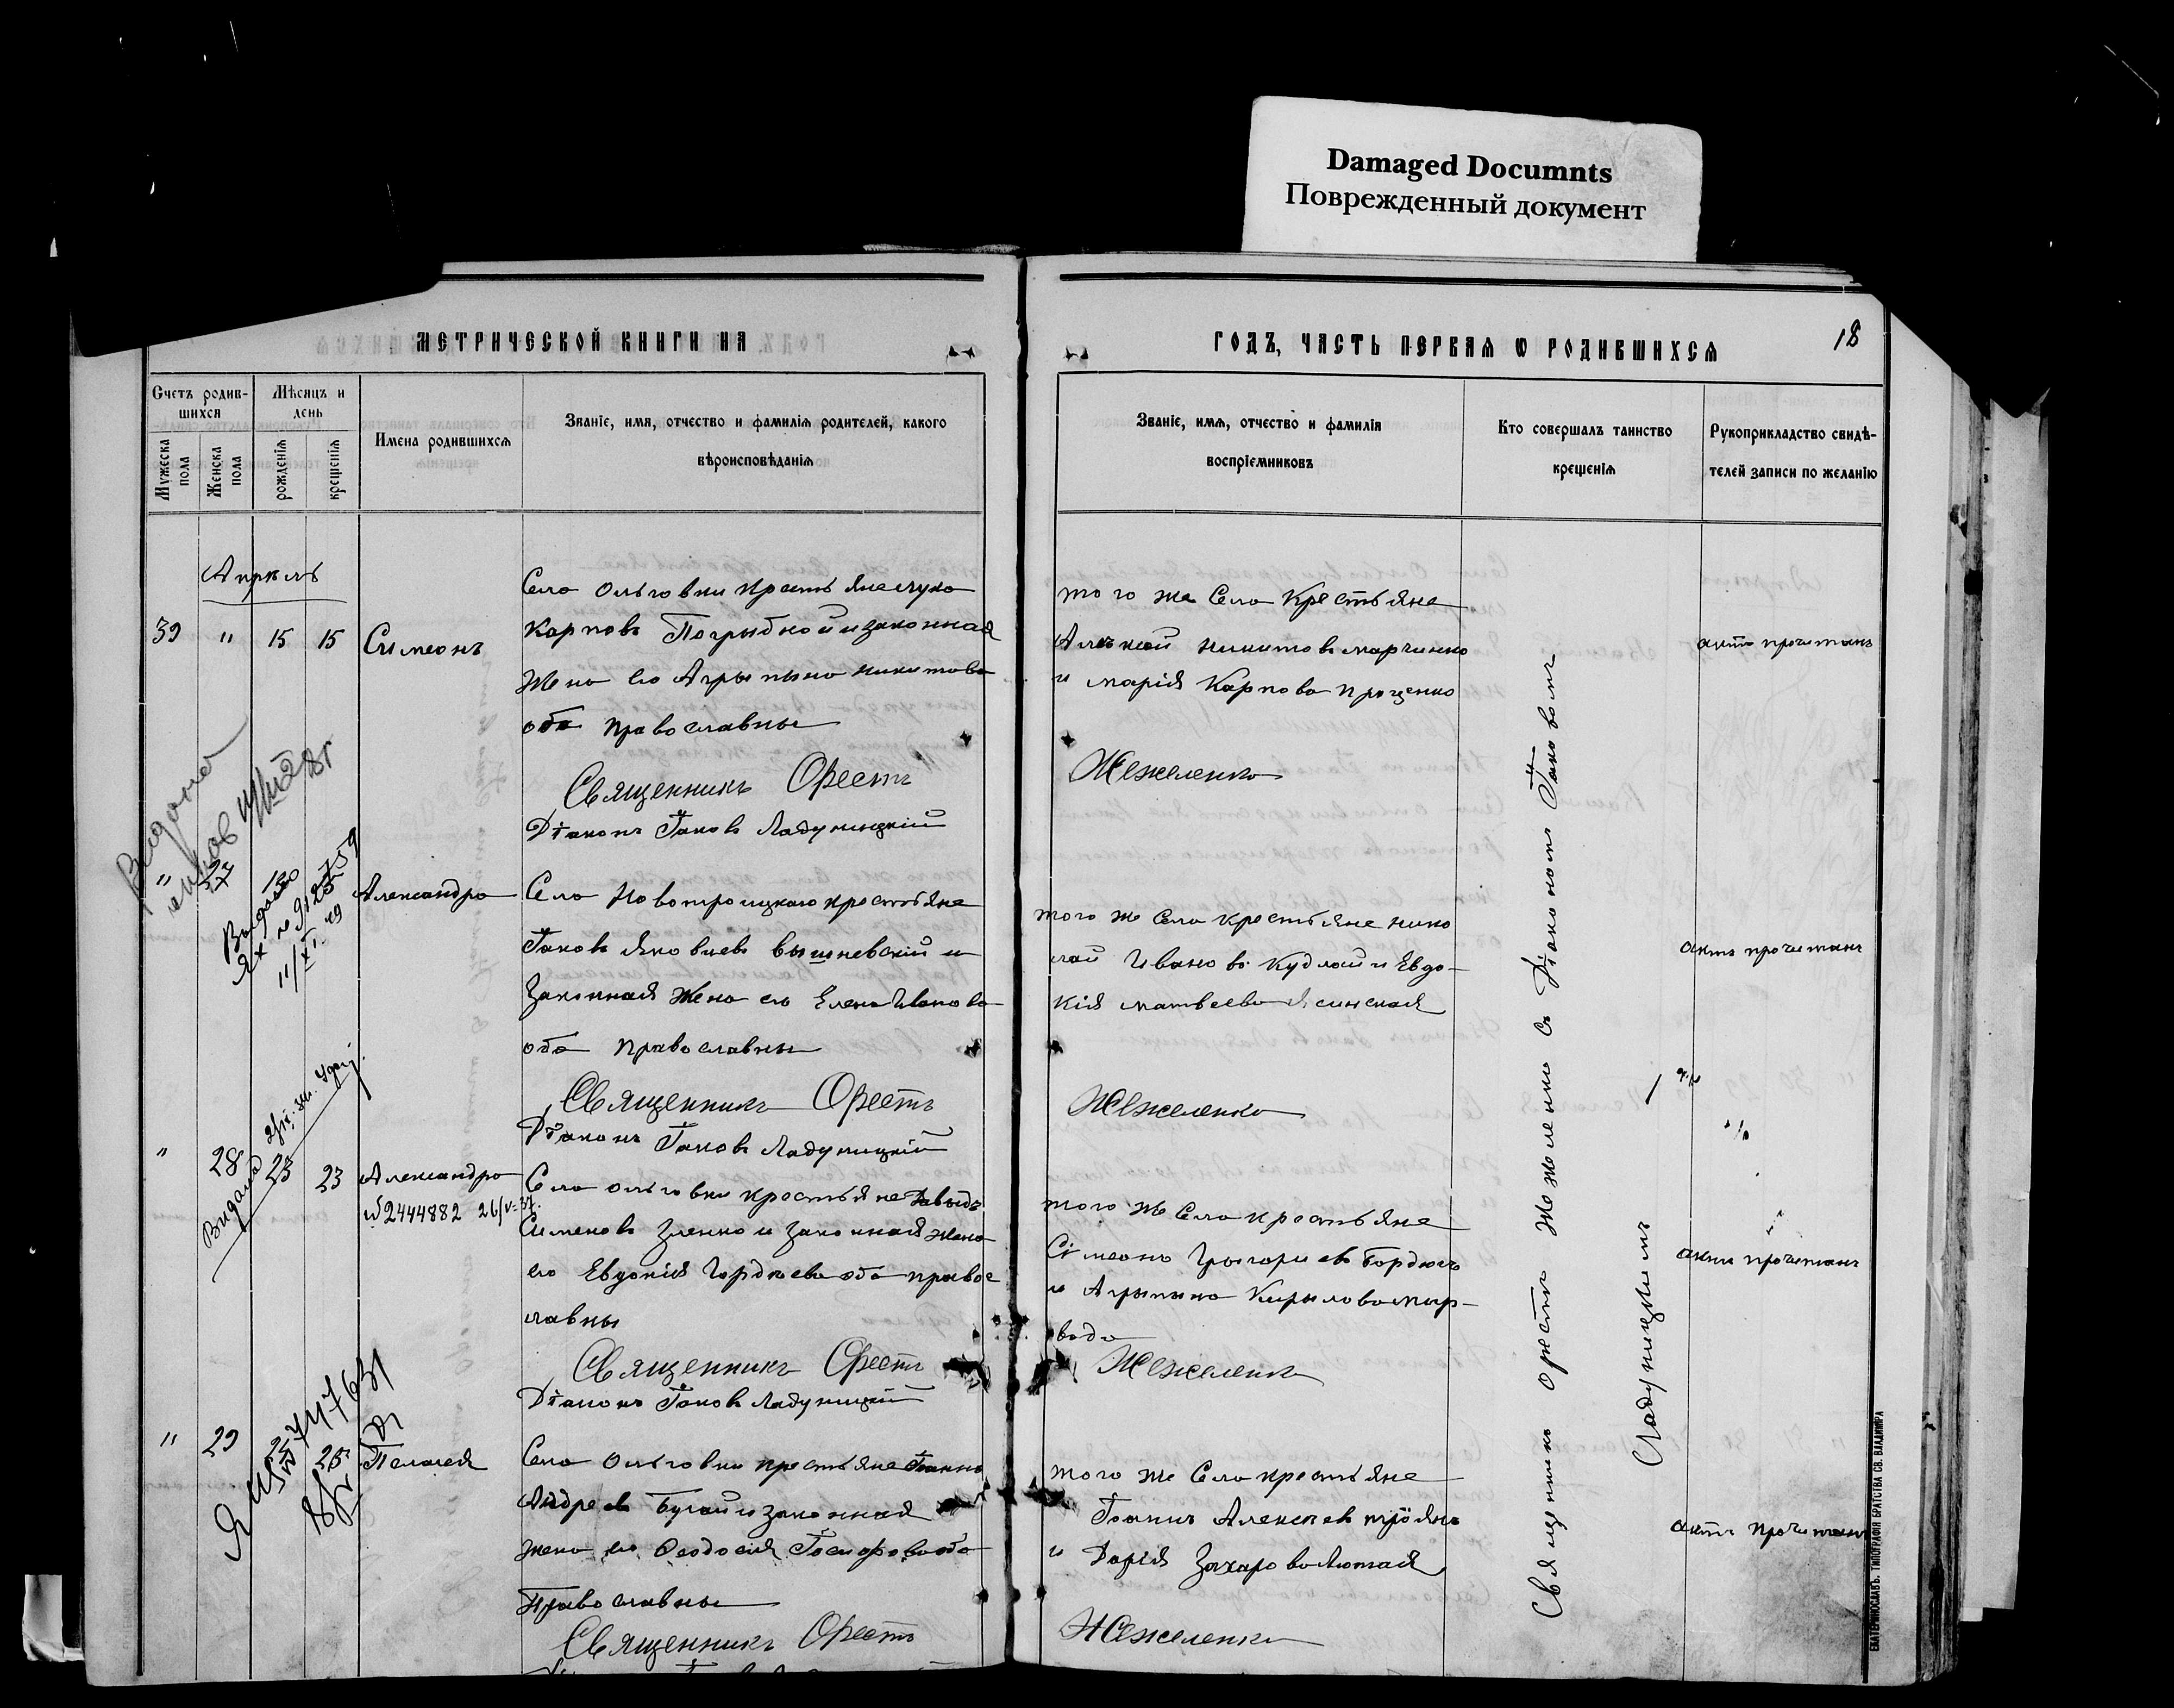 Damaged Documnts
Поврежденный документ
МЕТРИЧЕСКОЙ КНИГИ НА
ГОДЪ, ЧАСТЬ ПЕРВАЯ Ѡ РОДИВШИХСЯ
18
Счетъ родив-
шихся
Мѣсяцъ и
день
Мужеска
пола
Женска
пола
рожденія
крещенія
Имена родившихся
Званіе, имя, отчество и фамилія родителей, какого
вѣроисповѣданія
Званіе, имя, отчество и фамилія
воспріемниковъ
Кто совершалъ таинство
крещенія
Рукоприкладство свидѣ-
телей записи по желанію
Апрѣль
39 " 15 15 Симеонъ
Села Ольговки крестьяне Лука
Карповъ Погрыбной и законная
жена его Агрыпына Никитова
оба православны
Священникъ Орестъ
Діаконъ Іаковъ Ладуницкій
того же Села Крестьяне
Алексѣй Никитовъ Марченко
и Марія Карпова Проценко
Жежеленко
актъ прочитанъ
Видана
" 27
Александра
Села Новотроицкаго крестьяне
Іаковъ Яковлевъ Вышневскій и
Законная жена его Елена Иванова
оба православны
Священникъ Орестъ
Діаконъ Іаковъ Ладуницкій
того же Села крестьяне Нико
лай Ивановъ Кудлай и Евдо-
кія Матвеева Ясинская
Жежеленко
актъ прочитанъ
" 28 23 23 Александра
2444882 26/V-37.
Видана
Села Ольговки крестьяне Давыдъ
Симеоновъ Зленко и законная жена
его Евдокія Гордѣева оба право
славны
Священникъ Орестъ
Діаконъ Іаковъ Ладуницкій
того же Села крестьяне
Сімеонъ Грыгориевъ Бордюгъ
и Агрыпына Кирылова
вода
Жежеленко
актъ прочитанъ
" 29 25 25 Пелагея
Села Ольговки крестьяне Іоаннъ
Андреевъ Бугай и законная
жена его Ѳеодосія оба
Православны
Священникъ Орестъ
того же Села крестьяне
Іоаннъ Алексѣевъ Троянъ
и Дарія Захарова Лютая
Жежеленко
актъ прочитанъ
Священникъ Орестъ Жежеленко съ Діакономъ Іаковомъ
Ладуницкимъ
ЕКАТЕРИНОСЛАВЪ. ТИПОГРАФІЯ БРАТСТВА СВ. ВЛАДИМІРА